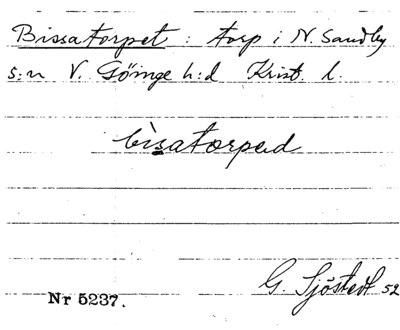 Bissatorpet : torp i N. Sandby
s:n V. Göinge h:d Krist. l.
bisatorped
G. Sjöstedt 52
Nr 5237.